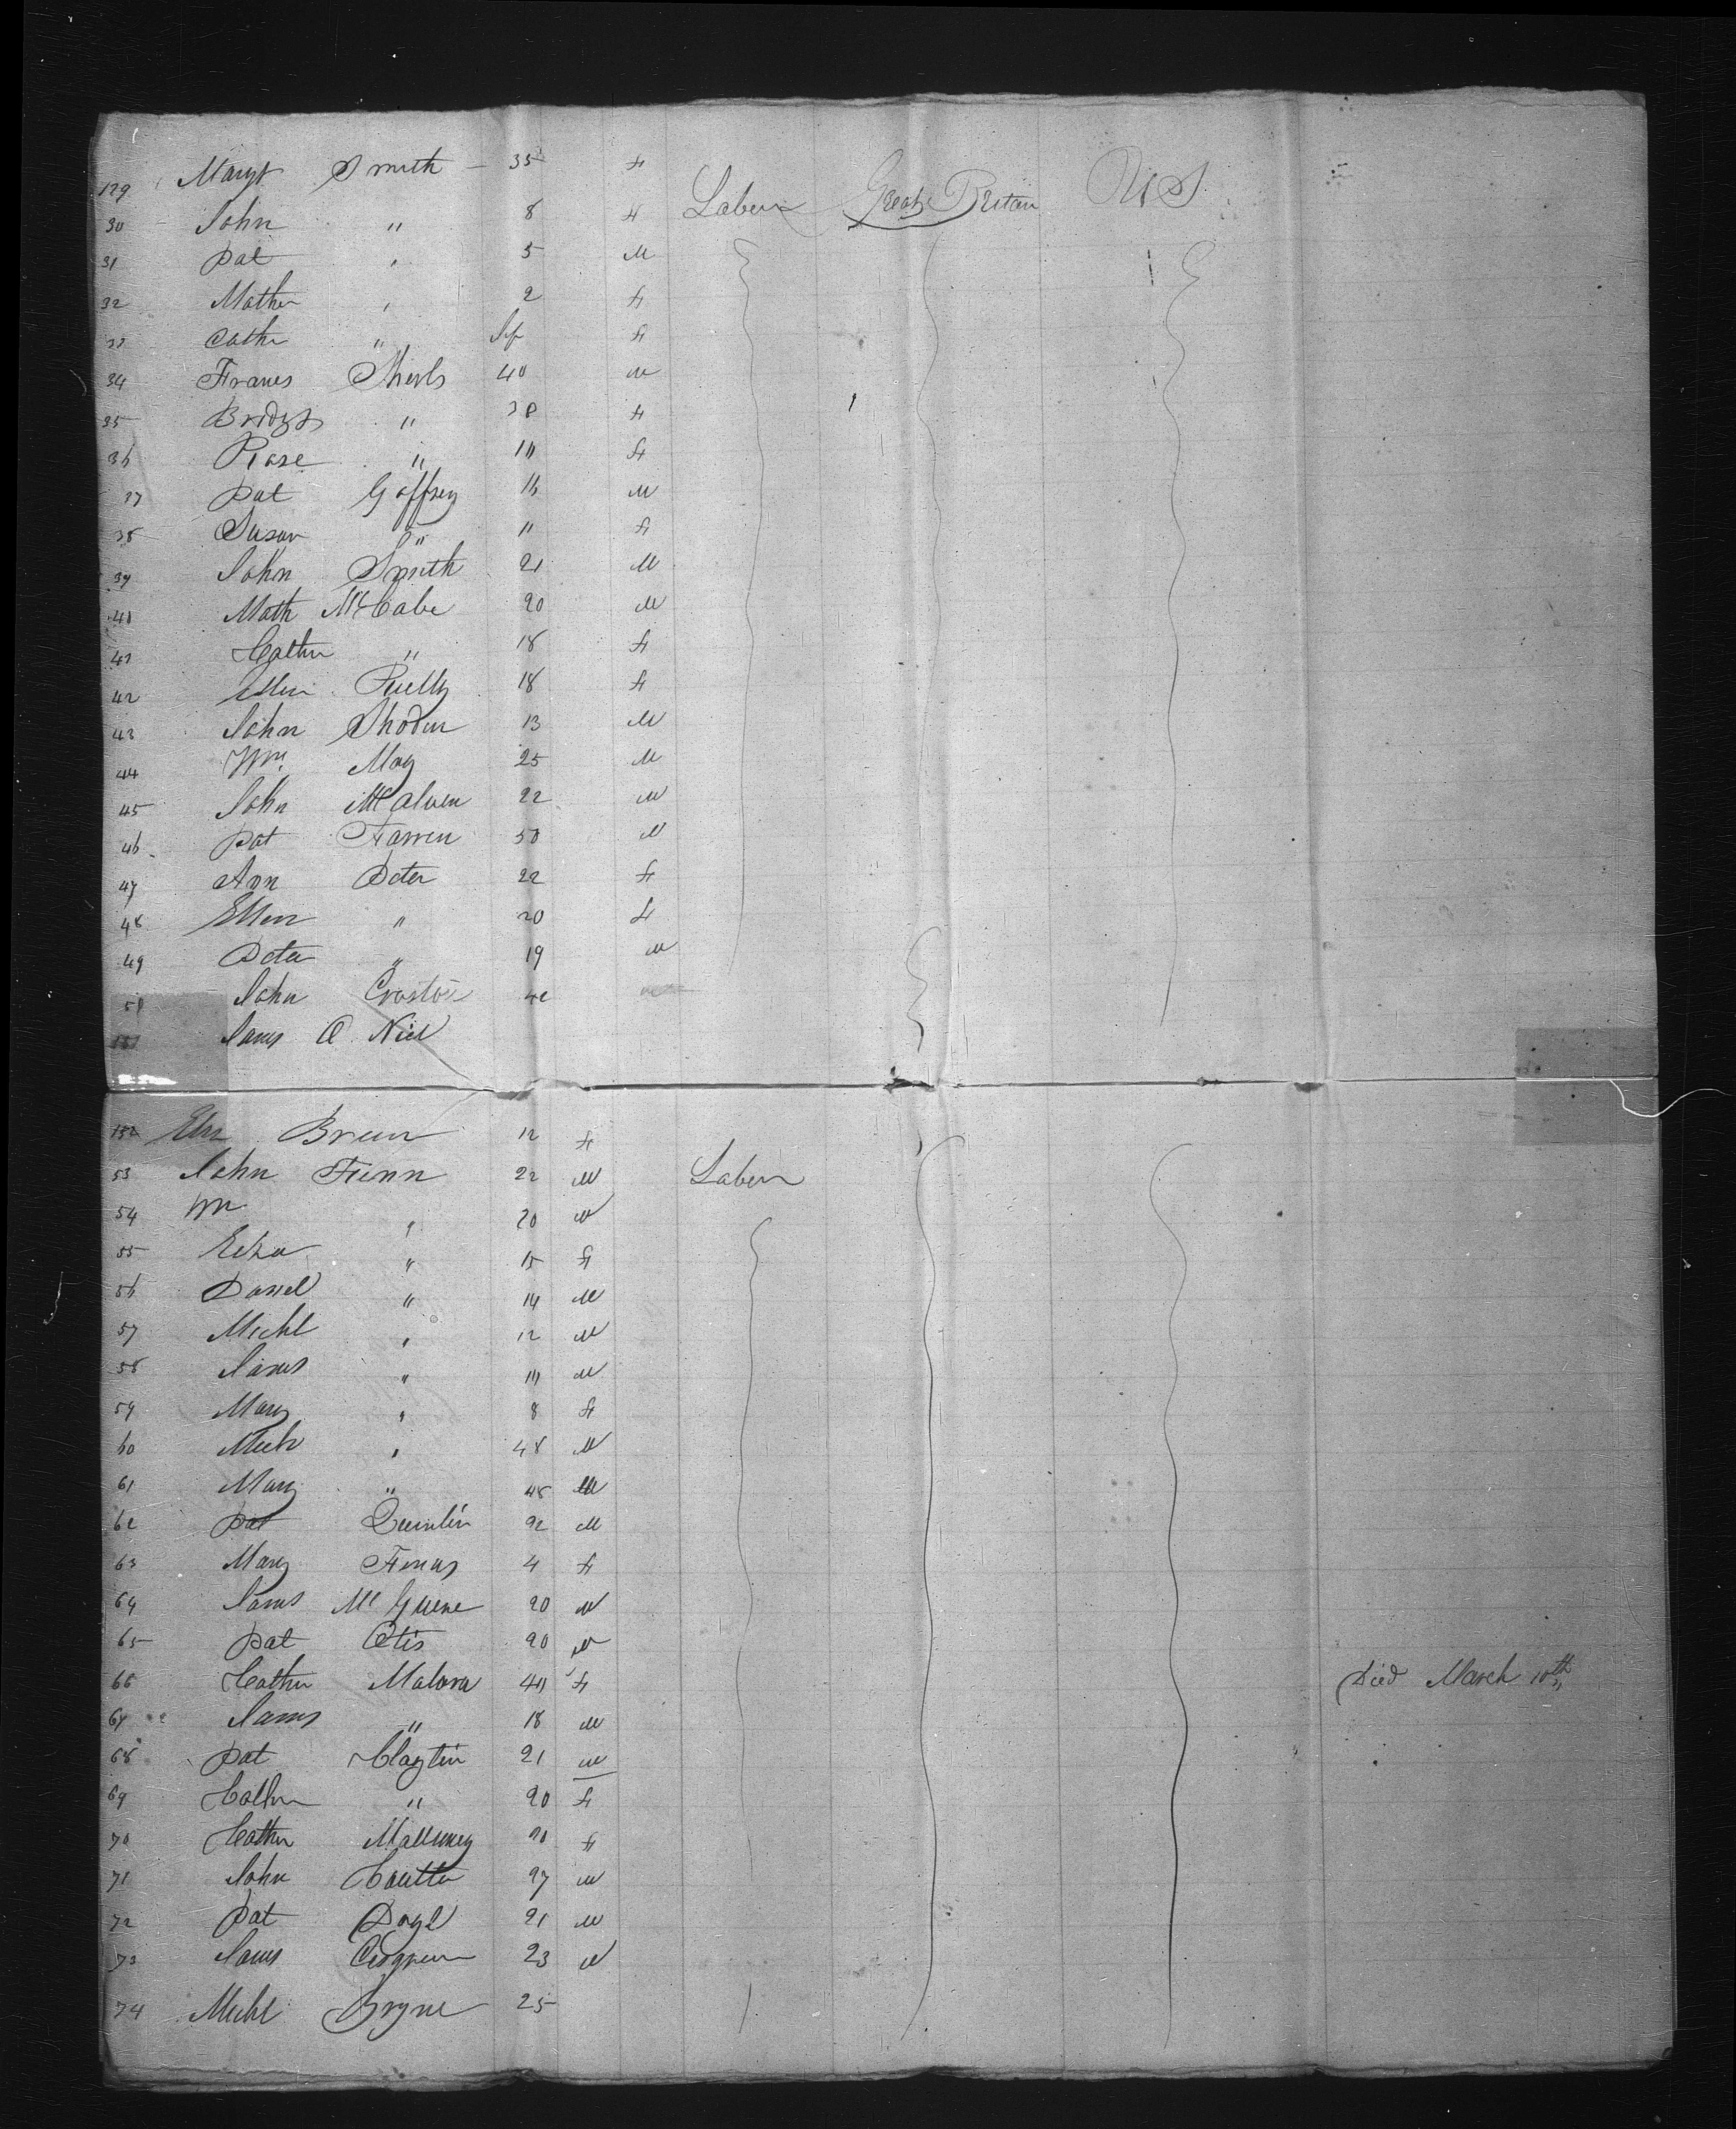 129 Margt Smith - 35 F
30 John " 8 F Laborer Great Britain U S
31 Pat " 5 M
32 Mather " 2 F
33 Cathe " Inf F
34 Frances 40 M
35 Bridgt " 38 F
36 Rose " 10 F
37 Pat Gaffney 16 M
38 Susan " 11 F
39 John Smith 21 M
40 Math McCabe 20 M
41 Cathn " 18 F
42 Ellen Reilly 18 F
43 John 13 M
44 Wm May 25 M
45 John McAlven 22 M
46 Pat Farren 50 M
47 Ann Peter 22 F
48 Ellen " 20 F
49 Peter " 19 M
50 John 42 M
151 James O Niel
152 Eln Breen 12 F
53 John Finn 22 M Laborer
54 Wm " 20 M
55 Eliza " 15 F
56 Daniel " 14 M
57 Michl " 12 M
58 James " 10 M
59 Mary " 8 F
60 Mich " 48 M
61 Mary " 48 M
62 Pat Quinlin 22 M
63 Mary 4 F
64 James McGuire 20 M
65 Pat Otis 20 M
66 Cathn Malona 40 F Died March 10th
67 James " 18 M
68 Pat Claytin 21 M
69 Cathn " 20 F
70 Cathn Malluney 20 F
71 John 27 M
72 Pat Doyl 21 M
73 James 23 M
74 Michl Bryne 25